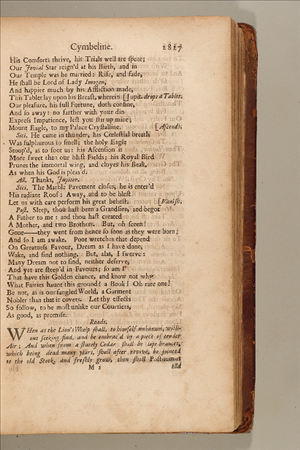 Cymbeline. 2827
His Comforts thrive, his Trials well are spent;
Our Jovial Star reign'd at his Birth, and in
Our Temple was he married: Rise, and fade,
He shall be Lord of Lady Imogen,
And happier much by his Affliction made,
This Tablet lay upon his Breast, wherein [Jupit. drops a Tablet.
Our pleasure, his full Fortune, doth confine,
And so away: no farther with your din
Express Impatience, lest you stir up mine;
Mount Eagle, to my Palace Crystalline. [Ascends.
Sici. He came in thunder, his Celestial breath
Was sulphurous to smell; the holy Eagle
Stoop'd, as to foot us: his Ascension is
More sweet than our blest Fields; his Royal Bird
Prunes the immortal wing, and cloyes his Beak,
As when his God is pleas'd.
All. Thanks, Jupiter.
Sici. The Marble Pavement closes, he is enter'd
His radiant Roof: Away, and to be blest
Let us with care perform his great behest. [Vanish.
Post. Sleep, thou hast been a Grandsire, and begot
A Father to me: and thou hast created
A Mother, and two Brothers. But, oh scorn!
Gone——they went from hence so soon as they were born;
And so I am awake. Poor wretches that depend
On Greatness Favour, Dream as I have done,
Wake, and find nothing. But, alas, I swerve:
Many Dream not to find, neither deserve,
And yet are steep'd in Favours; so am I
That have this Golden chance, and know not why:
What Fairies haunt this ground? a Book! Oh rare one!
Be not, as is our fangled World, a Garment
Nobler than that it covers. Let thy effects
So follow, to be most unlike our Courtiers,
As good, as promise.
Reads.
WHen as the Lion's Whelp shall, to himself unknown, with-
out seeking find, and be embrac'd by a piece of tender
Air; And when from a stately Cedar shall be lopt branches,
which being dead many years, shall after revive, be jointed
to the old Stock, and freshly grow, then shall Posthumus
M 2 end